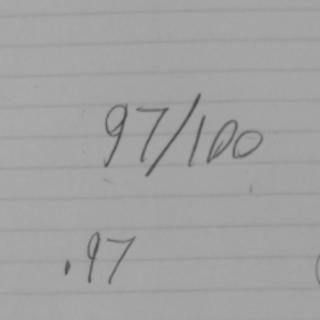 97/100
.97